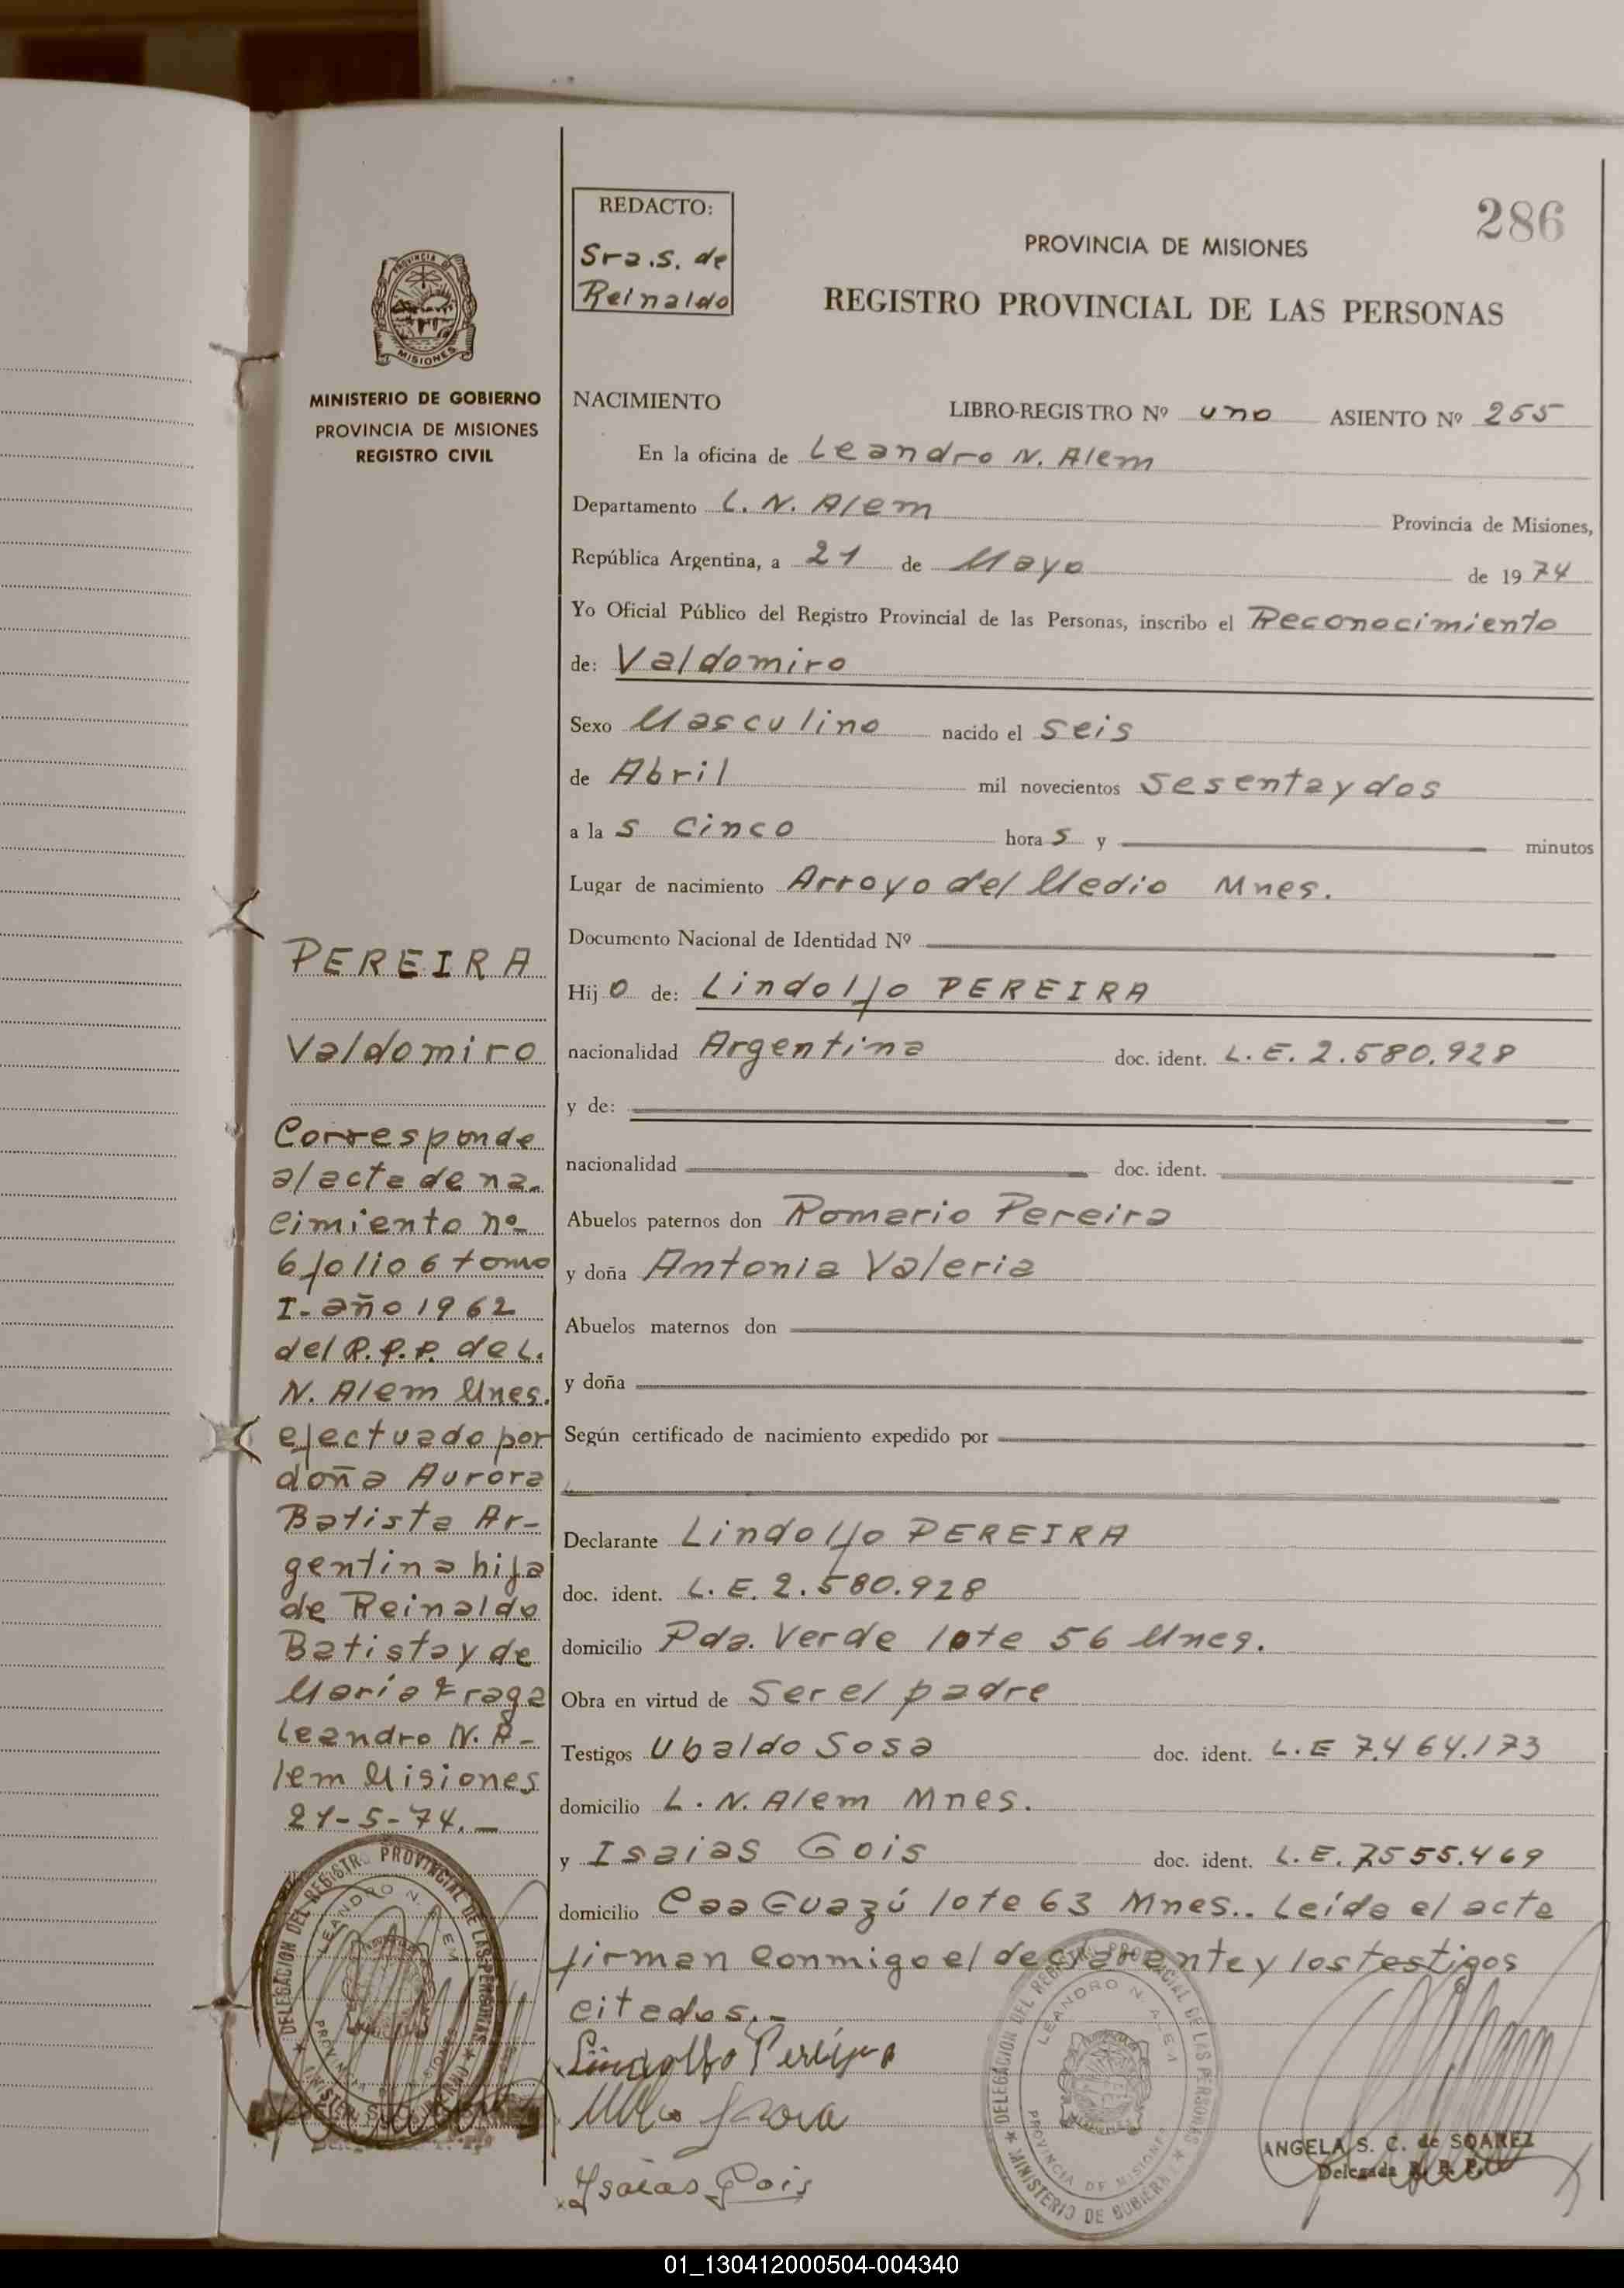 286
REDACTO:
Sra. S. de
Reinaldo
PROVINCIA DE MISIONES
REGISTRO PROVINCIAL DE LAS PERSONAS
PROVINCIA DE
MISIONES
MINISTERIO DE GOBIERNO
PROVINCIA DE MISIONES
REGISTRO CIVIL
NACIMIENTO LIBRO-REGISTRO Nº uno ASIENTO Nº 255
En la oficina de Leandro N. Alem
Departamento L. N. Alem Provincia de Misiones,
República Argentina, a 21 de Mayo de 1974
Yo Oficial Público del Registro Provincial de las Personas, inscribo el Reconocimiento
de: Valdomiro
Sexo Masculino nacido el seis
de Abril mil novecientos sesentaydos
a la s cinco hora s y minutos
Lugar de nacimiento Arroyo del Medio Mnes.
Documento Nacional de Identidad Nº
Hij o de: Lindolfo PEREIRA
nacionalidad Argentina doc. ident. L. E. 2.580.928
y de:
nacionalidad doc. ident.
Abuelos paternos don Romario Pereira
y doña Antonia Valeria
Abuelos maternos don
y doña
Según certificado de nacimiento expedido por
Declarante Lindolfo PEREIRA
doc. ident. L. E. 2.580.928
domicilio Pda. Verde lote 56 Mnes.
Obra en virtud de Ser el padre
Testigos Ubaldo Sosa doc. ident. L. E 7.464.173
domicilio L. N. Alem Mnes.
y Isaias Gois doc. ident. L. E. 7.555.469
domicilio Caa Guazú lote 63 Mnes.. Leída el acta
firman conmigo el declarante y los testigos
citados.-
Lindolfo Pereira
Isaias Gois
PEREIRA
Valdomiro
Corresponde
al acta de na-
cimiento nº
6 folio 6 tomo
I- año 1962
del R.P.P. de L.
N. Alem Mnes.
efectuado por
doña Aurora
Batista Ar-
gentina hija
de Reinaldo
Batista y de
María Fraga
Leandro N. A-
lem Misiones
21-5-74.-
DELEGACION DEL REGISTRO PROVINCIAL DE LAS PERSONAS
LEANDRO N. ALEM
PROVINCIA DE MISIONES
DELEGACION DEL REGISTRO PROVINCIAL DE LAS PERSONAS
LEANDRO N. ALEM
PROVINCIA DE MISIONES
MINISTERIO DE GOBIERNO
ANGELA S. C. de SOAREZ
Delegada R. P. P.
01_130412000504-004340